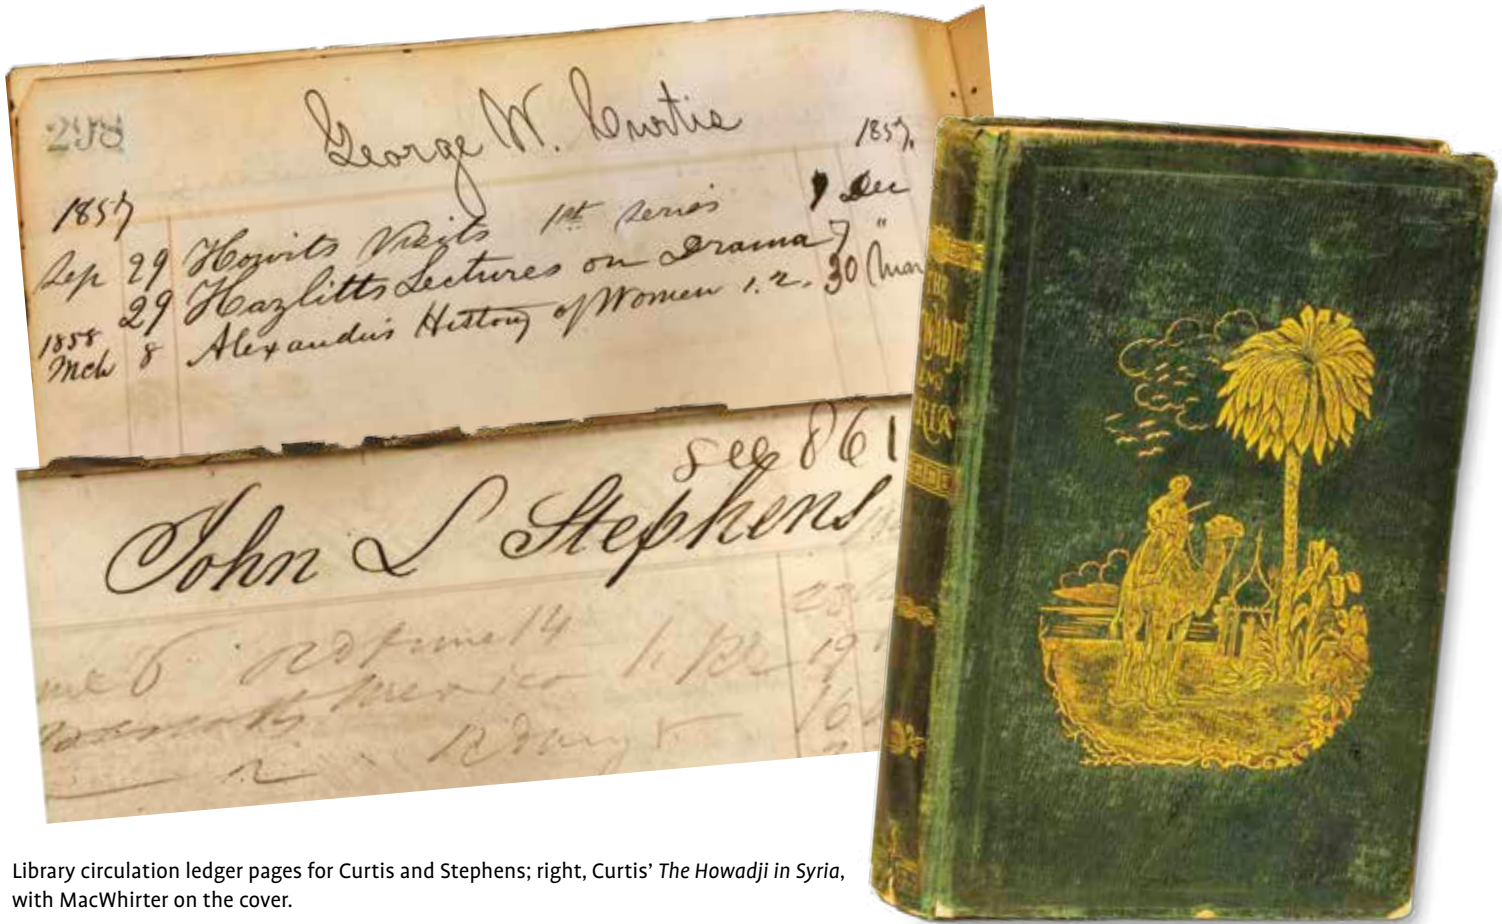 298
George W. Curtis
1857
1857.
Sep 29 Howits Visits 1st series 7 Dec
29 Hazlitts Lectures on Drama 7 "
1858
Mch 8 Alexanders History of Women 1.2. 30 Mar
see 861
John L Stephens
23
June 14
Mexico 19
16
2
THE
HOWADJI
IN
SYRIA
Library circulation ledger pages for Curtis and Stephens; right, Curtis’ The Howadji in Syria,
with MacWhirter on the cover.